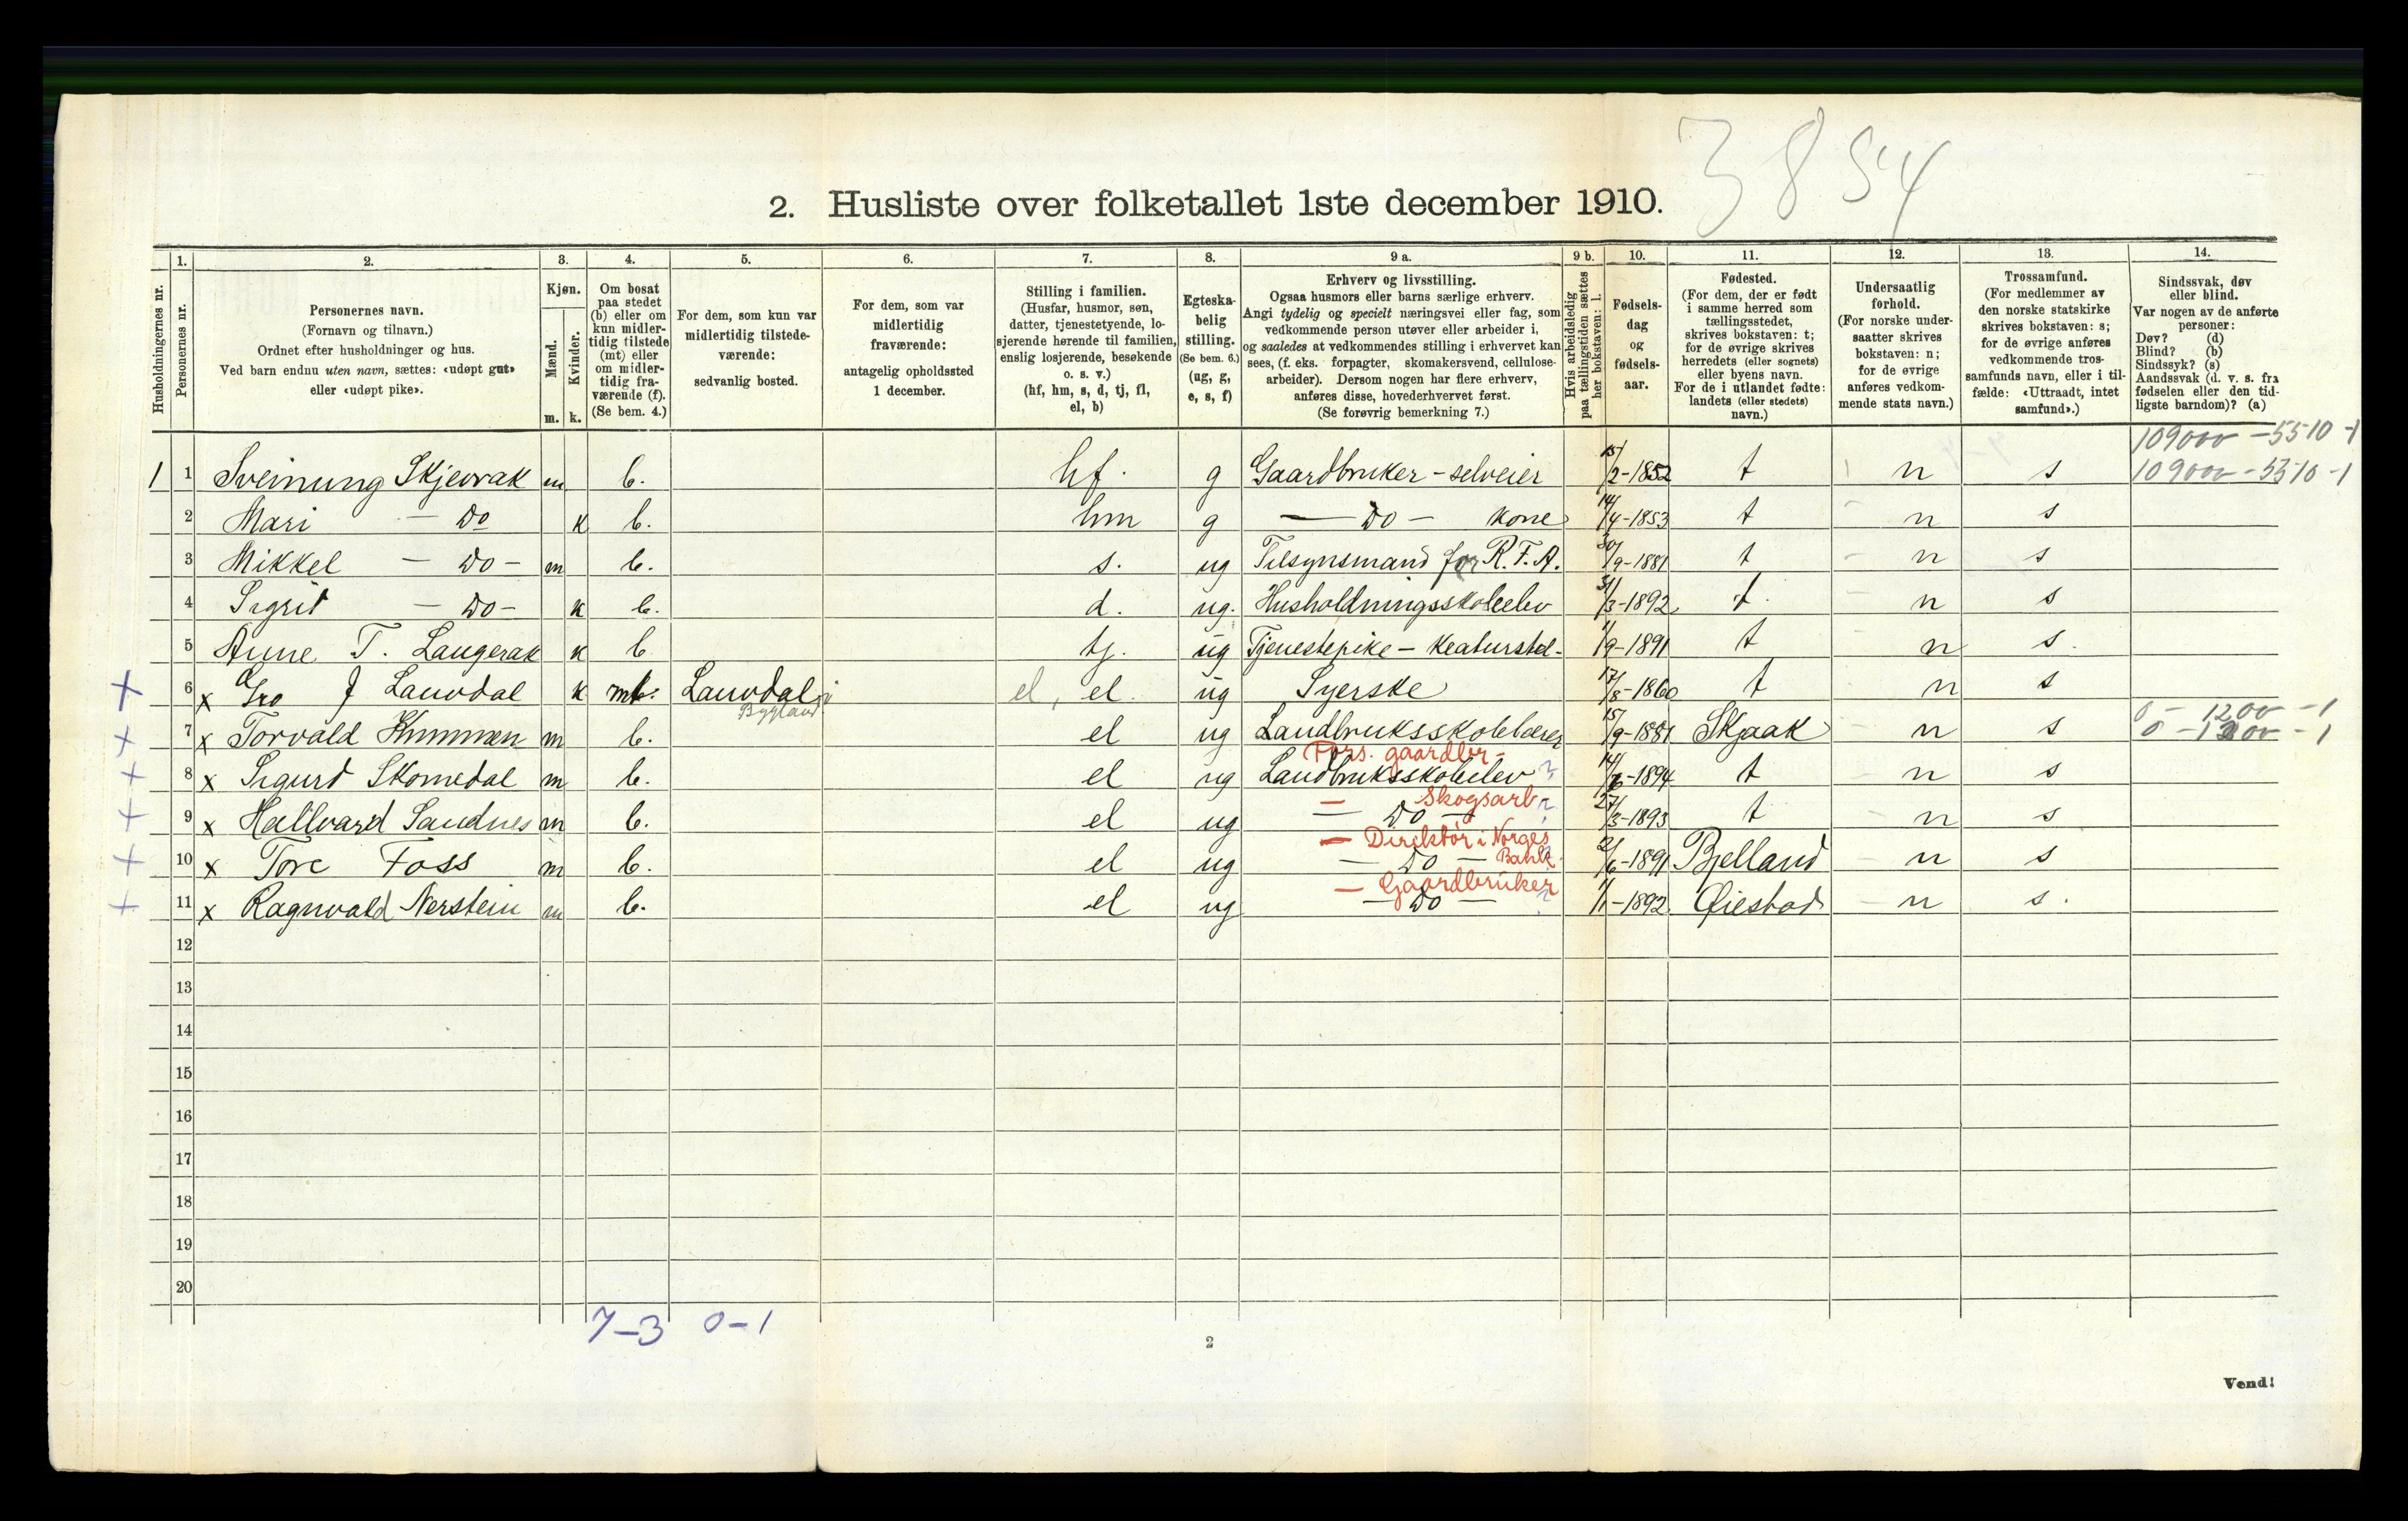 3854
2. Husliste over folketallet 1ste december 1910.
1. 2. 3. 4. 5. 6. 7. 8. 9 a. 9 b. 10. 11. 12. 13. 14.
Husholdningernes nr.
Personernes nr.
Personernes navn.
(Fornavn og tilnavn.)
Ordnet efter husholdninger og hus.
Ved barn endnu uten navn, sættes: «udøpt gut»
eller «udøpt pike».
Kjøn.
Mænd.
m.
Kvinder.
k.
Om bosat
paa stedet
(b) eller om
kun midler-
tidig tilstede
(mt) eller
om midler-
tidig fra-
værende (f).
(Se bem. 4.)
For dem, som kun var
midlertidig tilstede-
værende:
sedvanlig bosted.
For dem, som var
midlertidig
fraværende:
antagelig opholdssted
1 december.
Stilling i familien.
(Husfar, husmor, søn,
datter, tjenestetyende, lo-
sjerende hørende til familien,
enslig losjerende, besøkende
o. s. v.)
(hf, hm, s, d, tj, fl,
el, b)
Egteska-
belig
stilling.
(Se bem. 6.)
(ug, g,
e, s, f)
Erhverv og livsstilling.
Ogsaa husmors eller barns særlige erhverv.
Angi tydelig og specielt næringsvei eller fag, som
vedkommende person utøver eller arbeider i,
og saaledes at vedkommendes stilling i erhvervet kan
sees, (f. eks. forpagter, skomakersvend, cellulose-
arbeider). Dersom nogen har flere erhverv,
anføres disse, hovederhvervet først.
(Se forøvrig bemerkning 7.)
Hvis arbeidsledig
paa tællingstiden sættes
her bokstaven: l.
Fødsels-
dag
og
fødsels-
aar.
Fødested.
(For dem, der er født
i samme herred som
tællingsstedet,
skrives bokstaven: t;
for de øvrige skrives
herredets (eller sognets)
eller byens navn.
For de i utlandet fødte:
landets (eller stedets)
navn.)
Undersaatlig
forhold.
(For norske under-
saatter skrives
bokstaven: n;
for de øvrige
anføres vedkom-
mende stats navn.)
Trossamfund.
(For medlemmer av
den norske statskirke
skrives bokstaven: s;
for de øvrige anføres
vedkommende tros-
samfunds navn, eller i til-
fælde: «Uttraadt, intet
samfund».)
Sindssvak, døv
eller blind.
Var nogen av de anførte
personer:
Døv? (d)
Blind? (b)
Sindssyk? (s)
Aandssvak (d. v. s. fra
fødselen eller den tid-
ligste barndom)? (a)
109000 - 5510 - 1
1 1 Sveinung Skjevrak m b. hf. g Gaardbruker - selveier 15/2-1852 t n s 109000 - 5510 - 1
2 Mari - Do k b. hm g - Do - kone 14/4-1853 t n s
3 Mikkel - Do - m b. s. ug Tilsynsmand for R.F.A. 30/9-1881 t n s
4 Sigrid - Do - k b. d. ug. Husholdningsskoleelev 31/3-1892 t. n s
5 Anne T. Laugerak k b tj. ug Tjenestepike - Kreaturstel - 1/9-1891 t n s.
+ 6 x Gro J Lauvdal k mt. Lauvdal i el, el. ug Syerske 17/8-1860 t n s
Bygland
0 - 1200 - 1
+ 7 x Torvald m b. el ug Landbruksskolelærer 15/9-1881 Skjaak n s 0 - 1200 - 1
Fors. gaardbr -
+ 8 x Sigurd Skomedal m b. el ug Landbruksskoleelev ? 14/6-1894 t n s
- Skogsarb ?
+ 9 x Hallvard Sandnes m b. el ug - Do - 27/3-1893 t n s
- Direktør i Norges
Bank
+ 10 x Tore Foss m b. el ug - Do - 21/6-1891 Bjelland n s
- Gaardbruker
+ 11 x Ragnvald Nerstein m b. el ug - Do - ? 1/1-1892 Øiestad n s.
12
13
14
15
16
17
18
19
20
7-3 0-1
2
Vend!